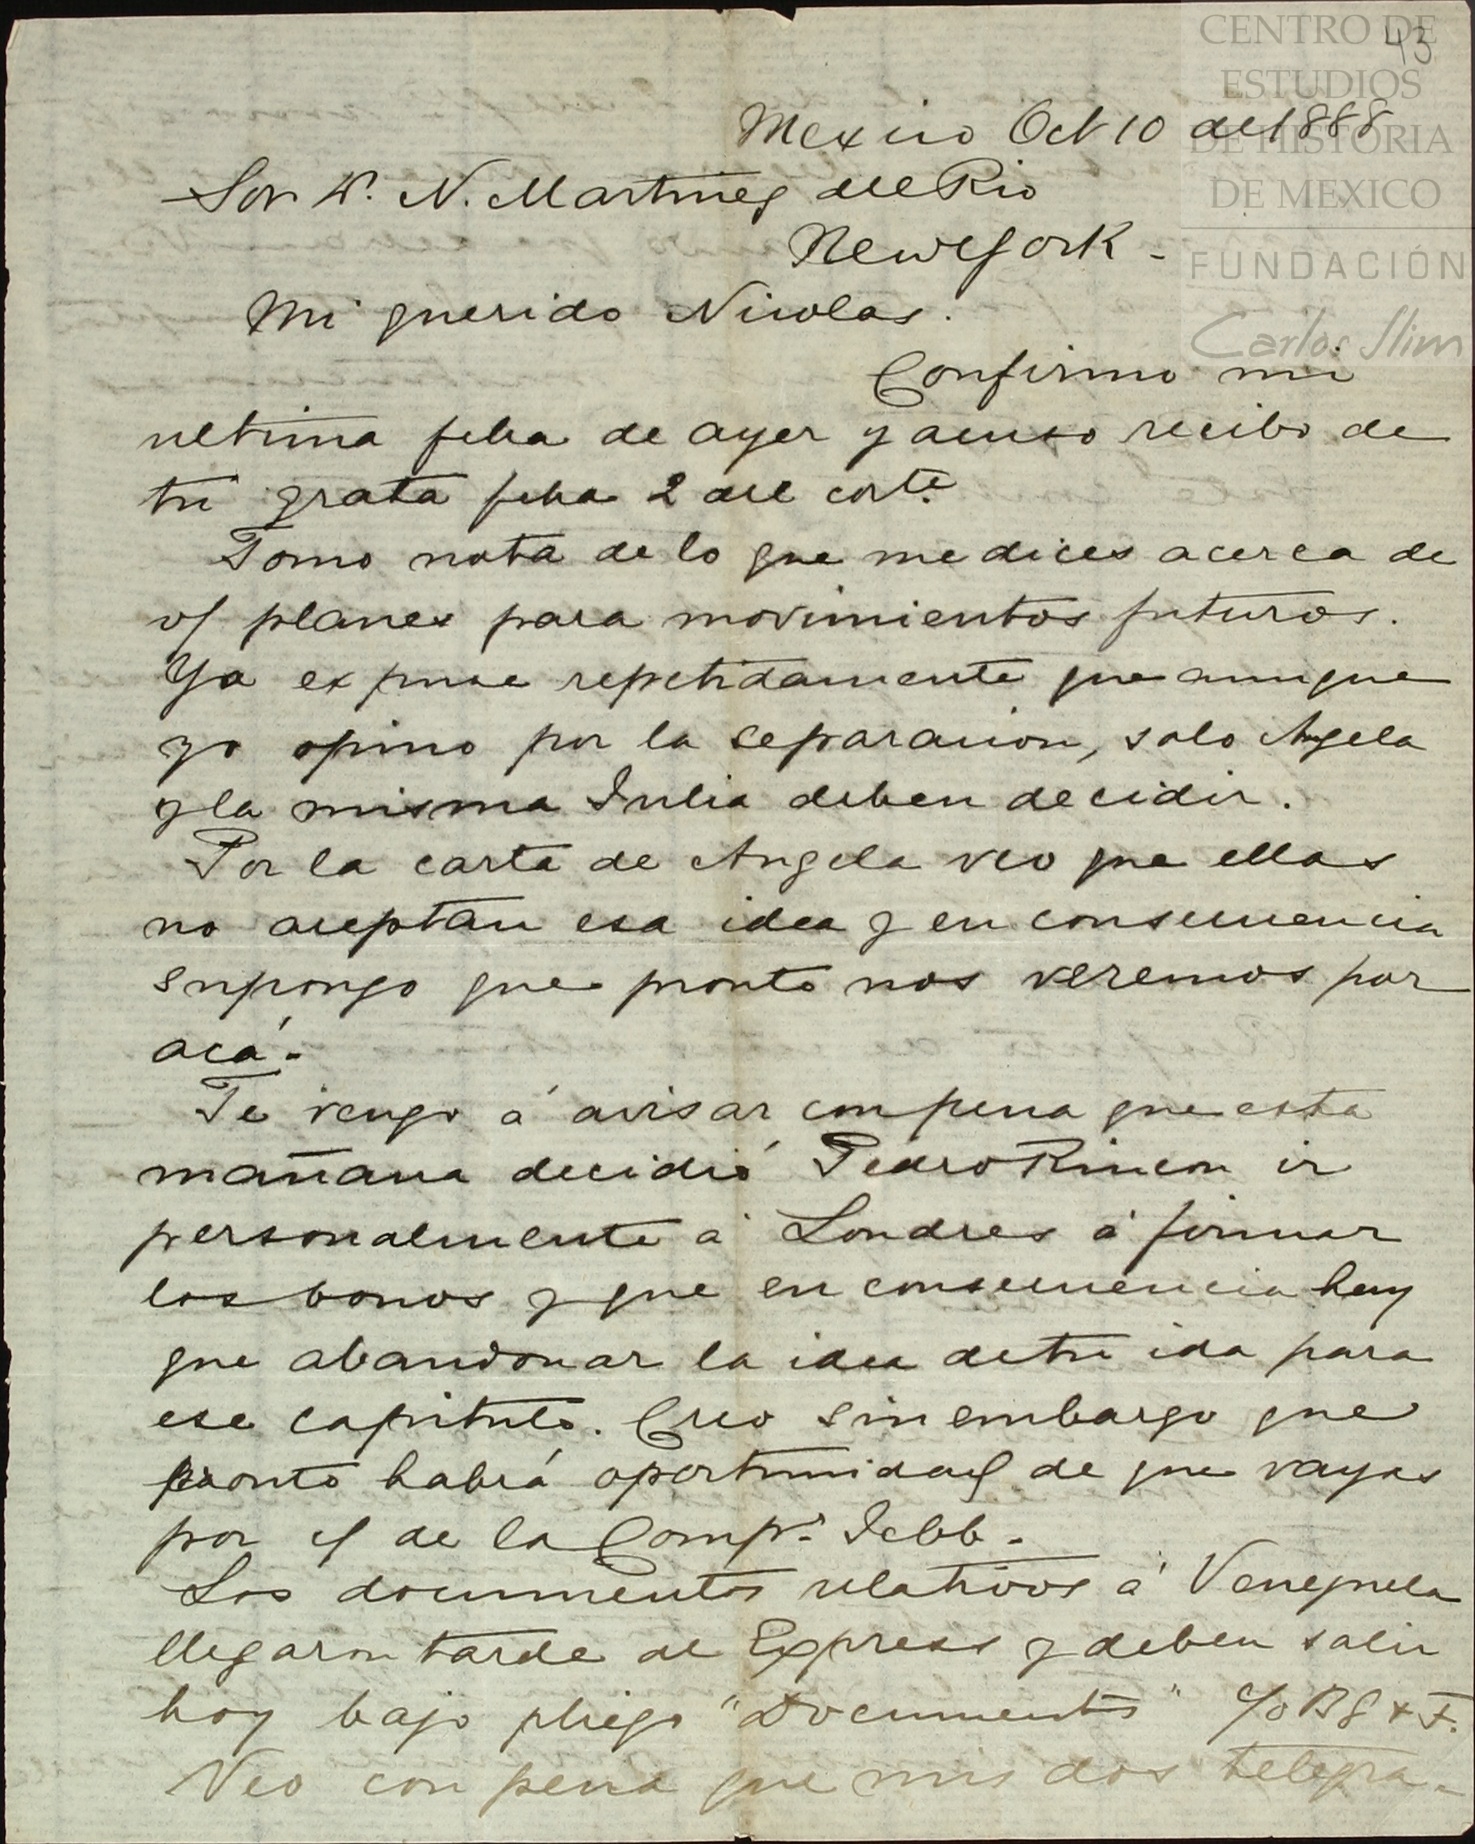 43
CENTRO DE
ESTUDIOS
DE HISTORIA
DE MEXICO
FUNDACIÓN
Carlos Slim
Mexico Oct 10 de 1888
Sor D. N. Martinez del Rio
New York -
Mi querido Nicolas.
Confirmo mi
ultima fcha de ayer y acuso recibo de
tu grata fcha 2 del corte.
Tomo nota de lo que me dices acerca de
v/ planes para movimientos futuros.
Ya expuse repetidamente que aunque
yo opino por la separacion, solo Angela
y la misma Julia deben decidir.
Por la carta de Angela veo que ellas
no aceptan esa idea y en consecuencia
supongo que pronto nos veremos por
acá.
Te vengo á avisar con pena que esta
mañana decidió Pedro Rincon ir
personalmente á Londres á firmar
los bonos y que en consecuencia hay
que abandonar la idea de tu ida para
ese capitulo. Creo sin embargo que
pronto habrá oportunidad de que vayas
por c/ de la Compa. Jebb.
Los documentos relativos á Venezuela
llegaron tarde al Express y deben salir
hoy bajo pliego "Documentos" c/o B G & F.
Veo con pena que mis dos telegra-